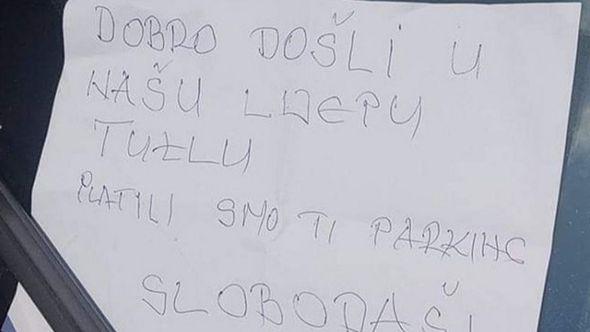 DOBRO DOŠLI U
NAŠU LIJEPU
TUZLU
PLATILI SMO TI PARKING
SLOBODAŠI